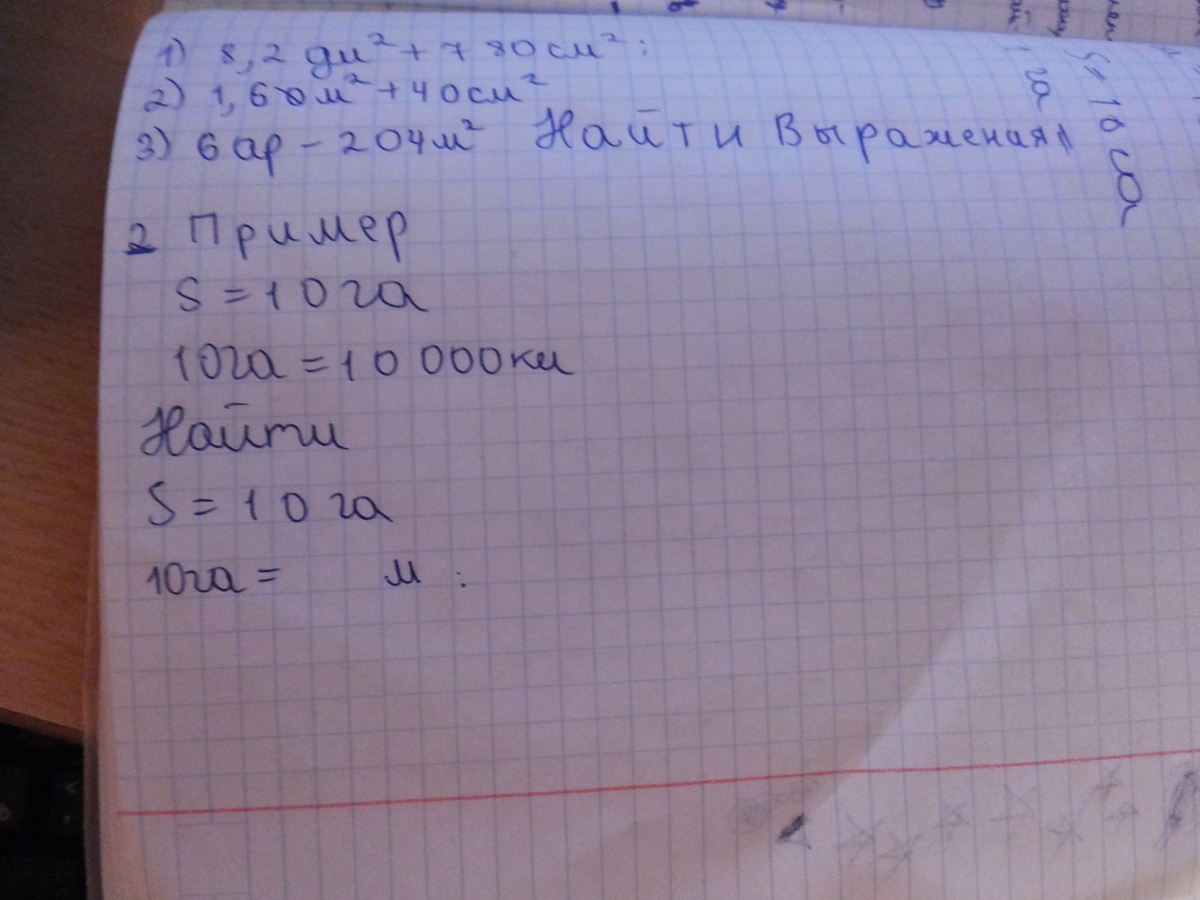 1) 8,2 дм² + 780 см² :
2) 1,60 м² + 40 см²
3) 6 ар - 204 м² Найти Выражения
2 Пример
S = 10 га
10га = 10 000 км
Найти
S = 10 га
10га = м :